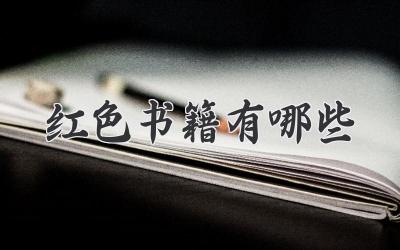 红色书籍有哪些